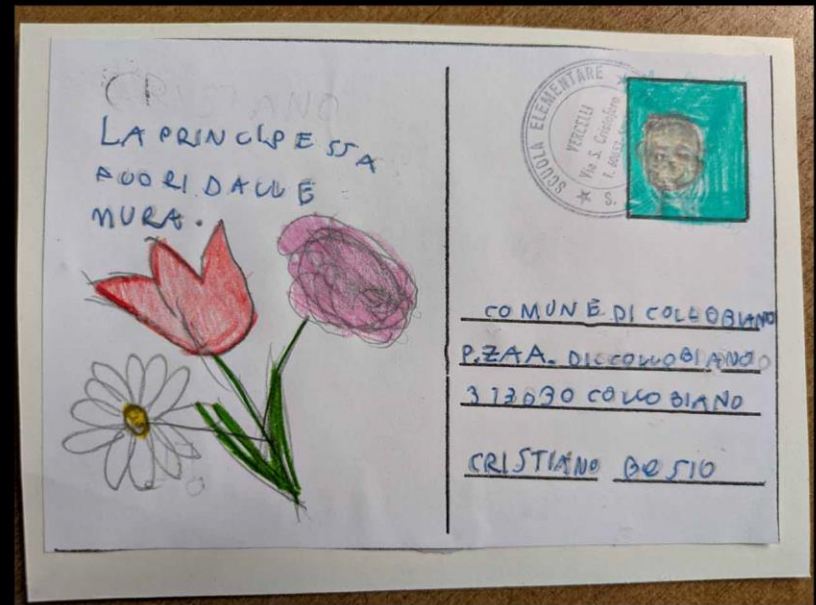 LA PRINCIPESSA
FUORI DALLE
MURA.
SCUOLA ELEMENTARE
VERCELLI
Via S. Cristoforo
COMUNE DI COLLOBIANO
P.ZA A. DI COLLOBIANO
313030 COLLOBIANO
CRISTIANO BOSIO